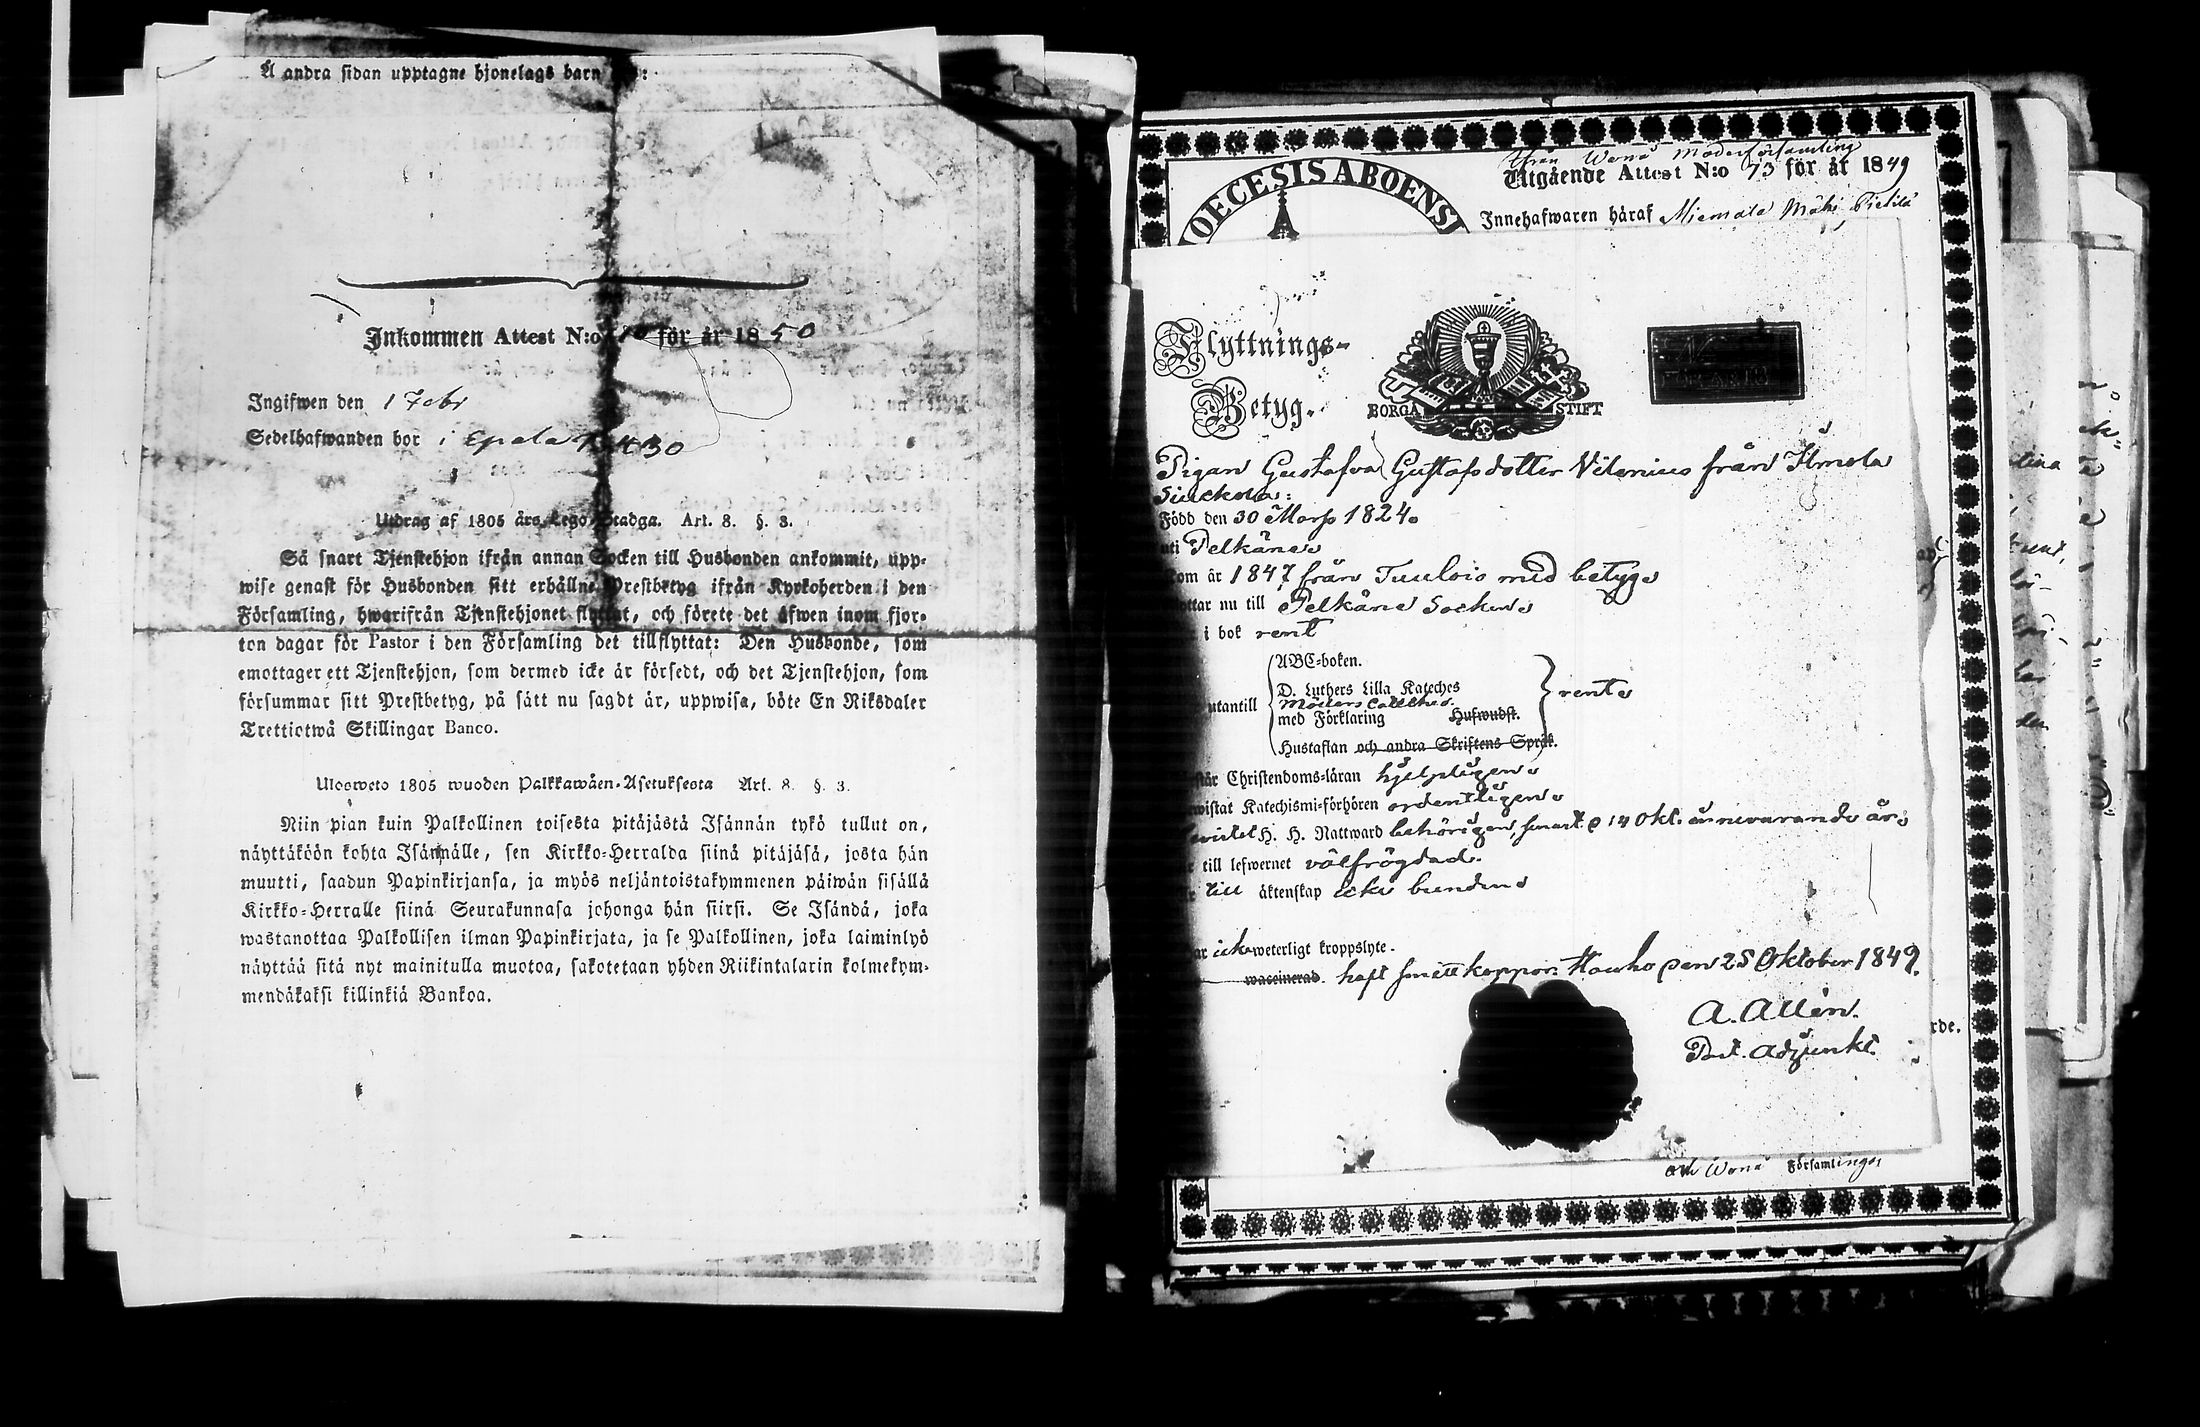 Å andra sidan upptagne hjonelags barn
Inkommen Attest N:o 10 för år 1850
Ingifwen den 1 Febr
Sedelhafwanden bor i Epala
Utdrag af 1805 års Lego-Stadga. Art. 8. §. 3.
Så snart Tjenstehjon ifrån annan Socken till Husbonden ankommit, upp-
wise genast för Husbonden sitt erhållne Prestbetyg ifrån Kyrkoherden i den
Församling, hwarifrån Tjenstehjonet flyttat, och förete det äfwen inom fjor-
ton dagar för Pastor i den Församling det tillflyttat: Den Husbonde, som
emottager ett Tjenstehjon, som dermed icke är försedt, och det Tjenstehjon, som
försummar sitt Prestbetyg, på sätt nu sagdt är, uppwisa, böte En Riksdaler
Trettiotwå Skillingar Banco.
Ulosweto 1805 wuoden Palkkawäen-Asetuksesta Art. 8. §. 3.
Niin pian kuin Palkollinen toisesta pitäjästä Isännän tykö tullut on,
näyttäköön kohta Isännälle, sen Kirkko-Herralda siinä pitäjäsä, josta hän
muutti, saadun Papinkirjansa, ja myös neljäntoistakymmenen päiwän sisällä
Kirkko-Herralle siinä Seurakunnasa johonga hän siirsi. Se Isändä, joka
wastanottaa Palkollisen ilman Papinkirjata, ja se Palkollinen, joka laiminlyö
näyttää sitä nyt mainitulla muotoa, sakotetaan yhden Riikintalarin kolmekym-
mendäkaksi killinkiä Bankoa.
ifrån Wånå Moderförsamling
Utgående Attest N:o 73 för år 1849
OECESIS ABOENSI
Innehafwaren häraf Miemala Mäki Pietilä
Flyttnings-
Betyg.
BORGÅ STIFT
Pigan Gustafva Gustafsdotter Vilenius från Ilmola
Siuckola:
Född den 30 Mars 1824.
uti Pelkäne
om år 1847 från Tuulois med betyg
ttar nu till Pelkäne Socken
i bok rent
utantill
ABC-boken.
D. Luthers Lilla Kateches
med Förklaring Hufwudst.
Hustaflan och andra Skriftens Språk.
rent
står Christendoms-läran hjelpligen
wistat Katechismi-förhören ordentligen
H. H. Nattward behörigen, senast d 14 Okt. innevarande år
till lefwernet välfrägdad.
till äktenskap icke bunden
ar icke weterligt kroppslyte.
waccinerad. haft smittkoppor. Hauho den 25 Oktober 1849.
A. Allén.
Past. Adjunkt.
rde.
och Wånå Församlingar